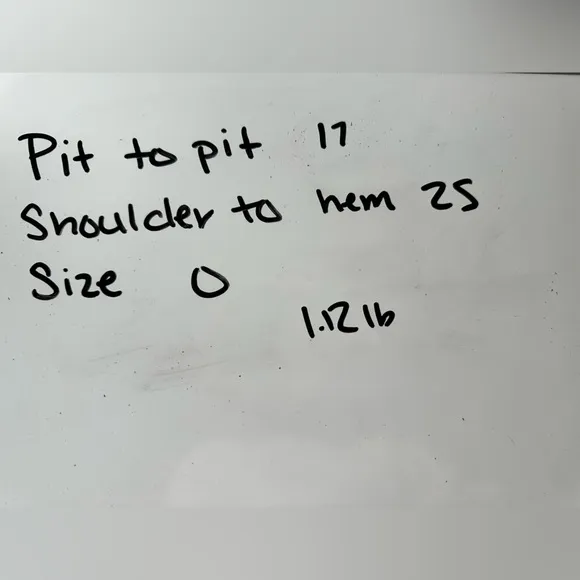 Pit to pit 17
Shoulder to hem 25
Size 0
1.12 lb